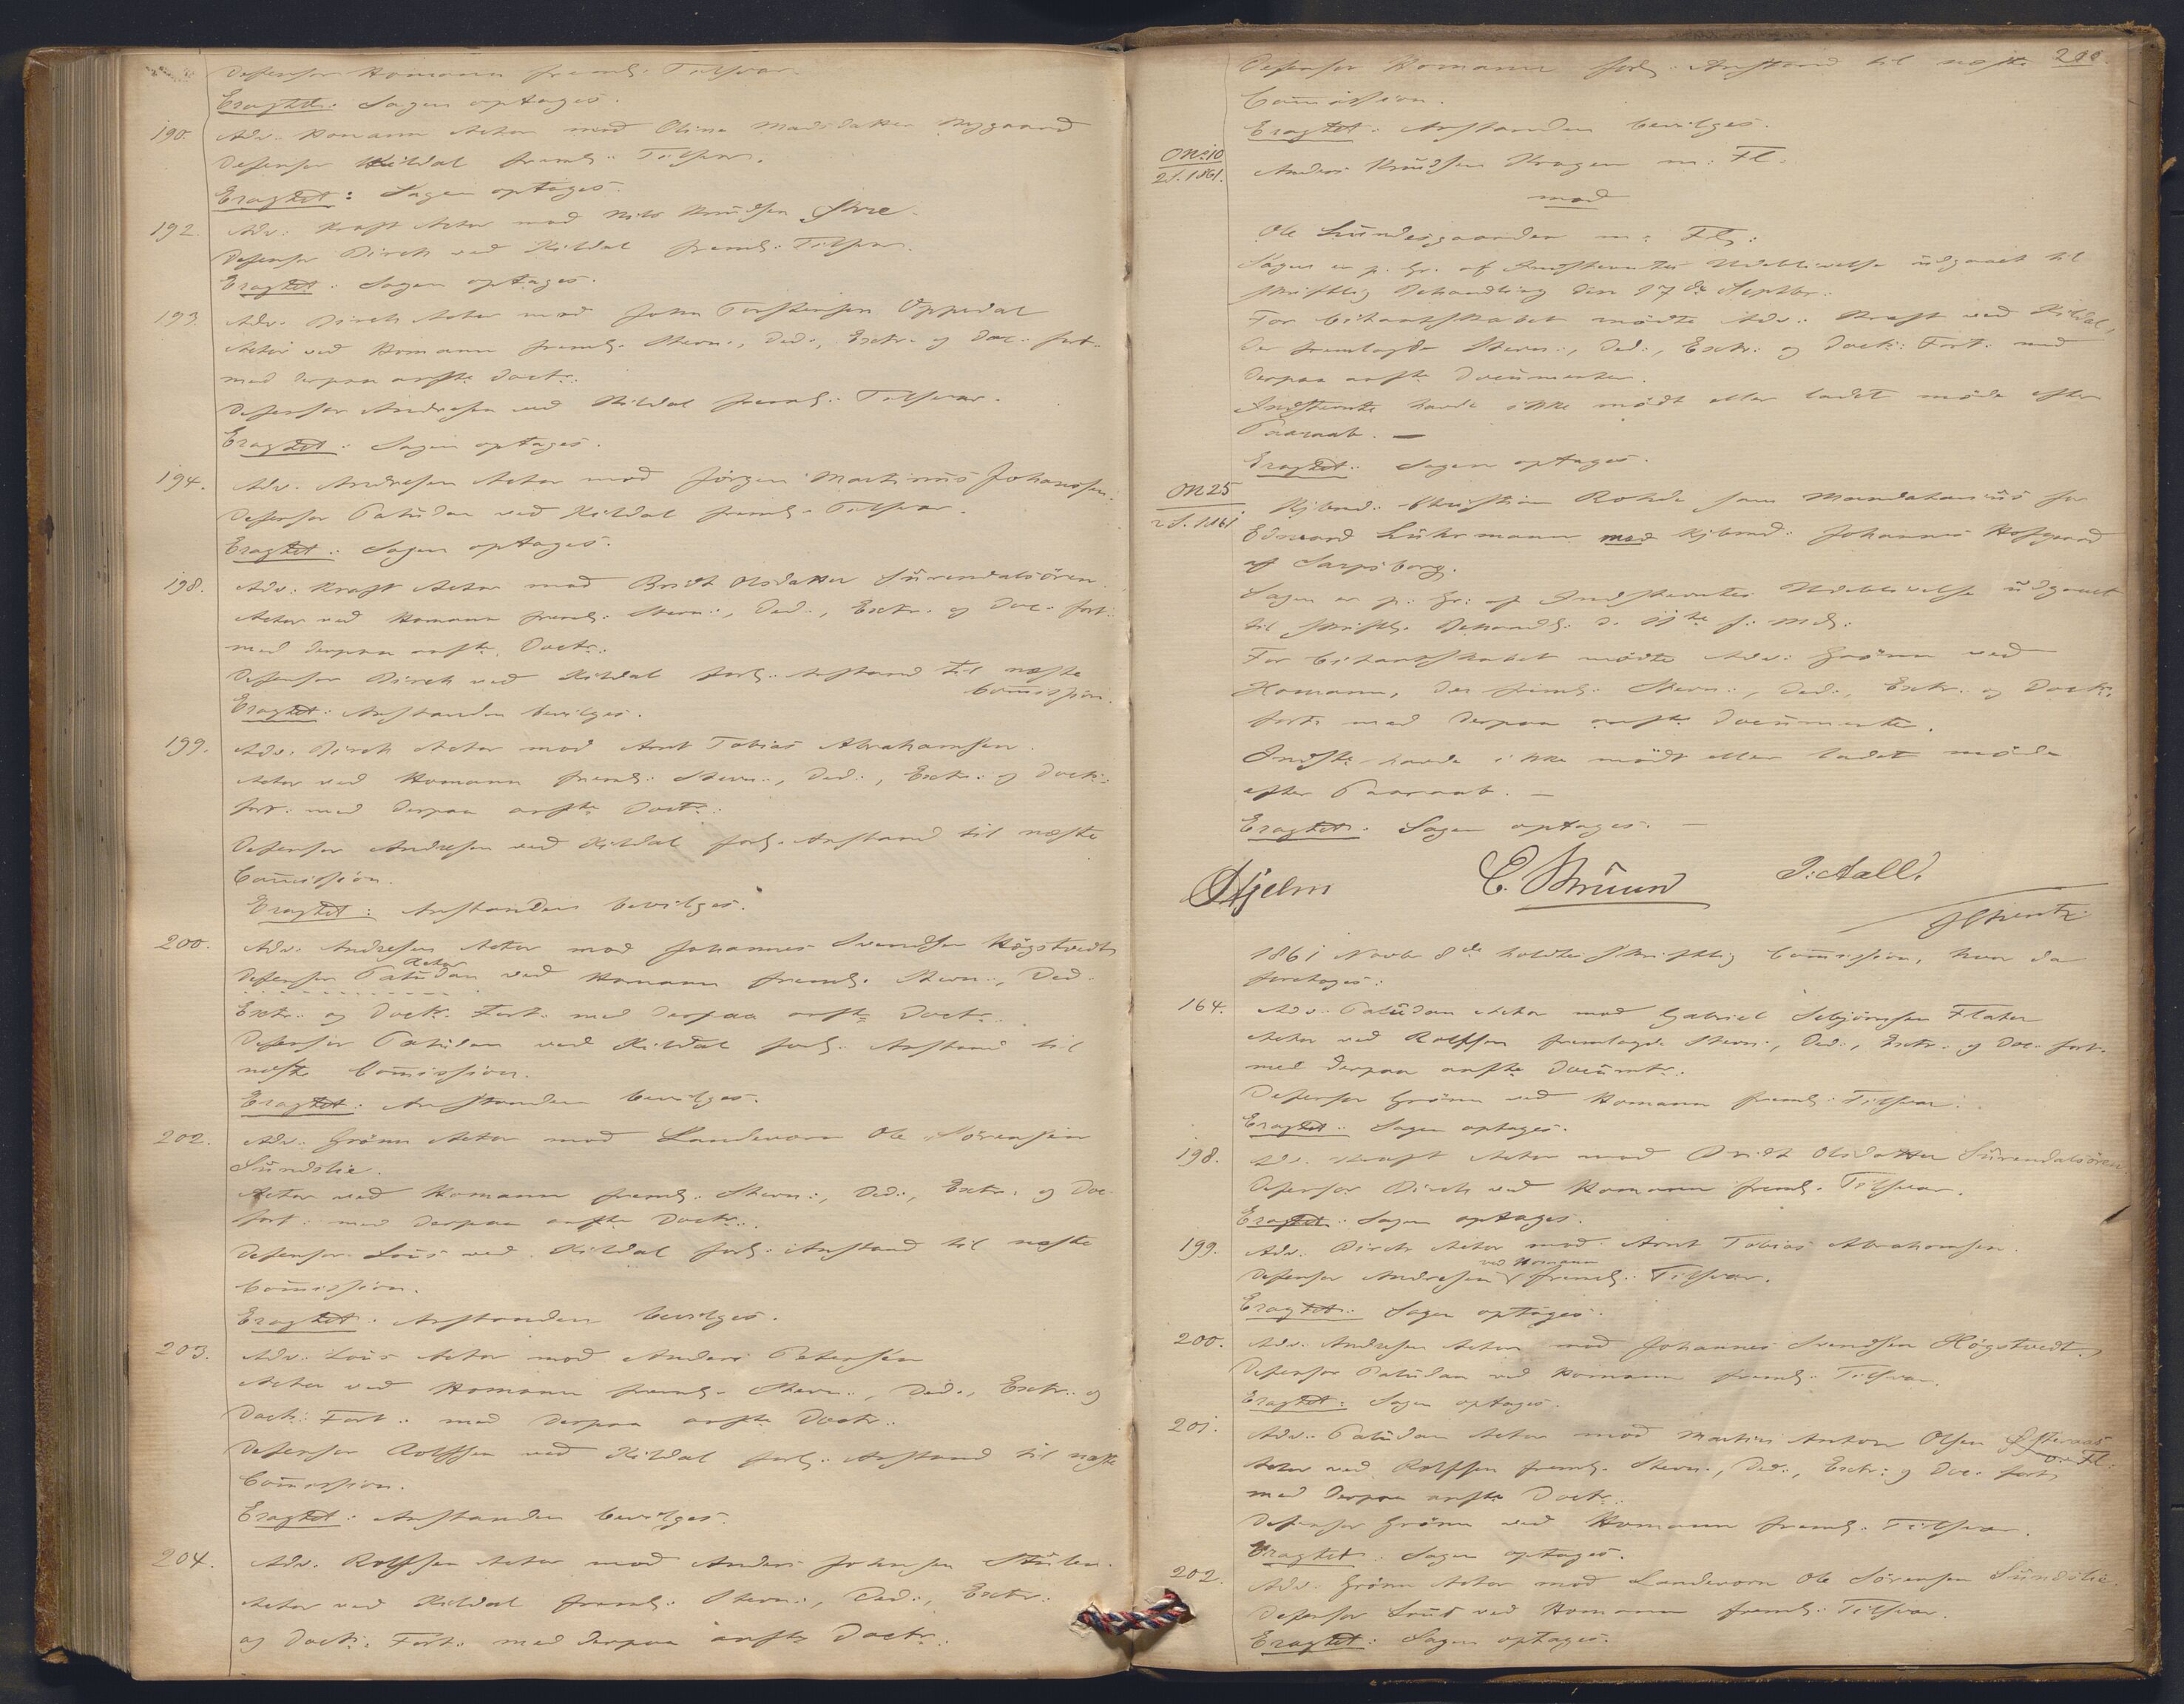 Defensor Homann freml. Tilsvar
Eragtet: Sagen optages.
190. Adv. Homann Actor mod Oline Madsdatter Nygaard
Defensor Kildal freml. Tilsvar.
Eragtet: Sagen optages.
192. Adv. Kraft Actor mod Nils Knudsen
Defensor Birch ved Kildal freml. Tilsvar.
Eragtet: Sagen optages.
193. Adv. Birch Actor mod John Torstensen Oppedal
Actor ved Homann freml. Stevn., Ded., Extr. og Doc. fort.
med derpaa anfte Doctr.
Defensor Andresen ved Kildal freml. Tilsvar.
Eragtet: Sagen optages.
194. Adv. Andresen Actor mod Jörgen Martinus Johansen.
Defensor Paludan ved Kildal freml. Tilsvar.
Eragtet: Sagen optages.
198. Adv. Kraft Actor mod Bridt Olsdatter Surendalsören.
Actor ved Homann freml. Stevn., Ded., Extr. og Doc. fort.
med derpaa anfte Doctr.
Defensor Birch ved Kildal forl. Anstand til næste
Commission.
Eragtet: Anstanden bevilges.
199. Adv. Birch Actor mod Arnt Tobias Abrahamsen.
Actor ved Homann freml. Stevn., Ded., Extr. og Doct.
fort. med derpaa anfte Doctr.
Defensor Andresen ved Kildal forl. Anstand til næste
Commission.
Eragtet: Anstanden bevilges.
200. Adv. Andresen Actor mod Johannes Svendsen Högstvedt
Actor
Defensor Paludan ved Homann freml. Stevn., Ded.
Extr. og Doctr. Fort. med derpaa anfte Doctr.
Defensor Paludan ved Kildal forl. Anstand til
næste Commission.
Eragtet: Anstanden bevilges.
202. Adv. Grönn Actor mod Landevorn Ole Sörensen
Sundslie.
Actor ved Homann freml. Stevn., Ded., Extr. og Doc.
fort. med derpaa anfte Doctr.
Defensor Lous ved Kildal forl. Anstand til næste
Commission.
Eragtet: Anstanden bevilges.
203. Adv. Lous Actor mod Anders Petersen
Actor ved Homann freml. Stevn., Ded., Extr. og
Doct. Fort. med derpaa anfte Doctr.
Defensor Rolfsen ved Kildal forl. Anstand til næste
Commission.
Eragtet: Anstanden bevilges.
204. Adv. Rolfsen Actor mod Anders Johnsen
Actor ved Kildal freml. Stevn., Ded., Extr.
og Doct. Fort. med derpaa anfte Doctr.
Defensor Homann forl. Anstand til næste 200.
Commission.
Eragtet: Anstanden bevilges.
O No 10
2 S. 1861. Anders Knudsen Kragen m: Fl.
mod
Ole Lundesgaarden m: Fl:
Sagen er p. Gr. af Indstevntes Udeblivelse udgaaet til
skriftlig Behandling den 17de Septbr.
For Citantskabet mödte Adv. Kraft ved Kildal,
der fremlagde Stevn., Ded., Extr. og Doct. Fort. med
derpaa anfte Documenter.
Indstevnte havde ikke mödt eller ladet möde efter
Paaraab. —
Eragtet: Sagen optages.
O N 25
2 S. 1861. Kjbmd. Christian Rohde som Mandatarius for
Edward Lührmann mod Kjbmd. Johannes Hofgaard
af Sarpsborg.
Sagen er p. Gr. af Indstevntes Udeblivelse udgaaet
til skriftl. Behandl. d. 11te f. Md.
For Citantskabet mödte Adv. Grönn ved
Homann, der freml. Stevn., Ded., Extr. og Doctr.
fort. med derpaa anfte Documenter.
Indste. havde ikke mödt eller ladet möde
efter Paaraab. —
Eragtet: Sagen optages. —
Hjelm C. Bruun J: Aall.
1861 Novbr 8de holdtes skriftlig Commission, hvor da
foretoges:
164. Adv. Paludan Actor mod Gabriel Flater
Actor ved Rolfsen fremlagde Stevn., Ded., Extr. og Doc. fort.
med derpaa anfte Documtr.
Defensor Grönn ved Homann freml. Tilsvar.
Eragtet: Sagen optages.
198. Adv. Kraft Actor mod Bridt Olsdatter Surendalsören.
Defensor Birch ved Homann freml. Tilsvar.
Eragtet: Sagen optages.
199. Adv. Birch Actor mod Arnt Tobias Abrahamsen.
ved Homann
Defensor Andresen freml. Tilsvar.
Eragtet: Sagen optages.
200. Adv. Andresen Actor mod Johannes Svendsen Högstvedt.
Defensor Paludan ved Homann freml. Tilsvar.
Eragtet: Sagen optages.
201. Adv. Paludan Actor mod Martin Anton Olsen
m: Fl.
Actor ved Rolfsen freml. Stevn., Ded., Extr. og Doc. fort.
med derpaa anfte Doctr.
Defensor Grönn ved Homann freml. Tilsvar.
Eragtet: Sagen optages.
202. Adv. Grönn Actor mod Landevorn Ole Sörensen Sundslie.
Defensor Lous ved Homann freml. Tilsvar.
Eragtet: Sagen optages.